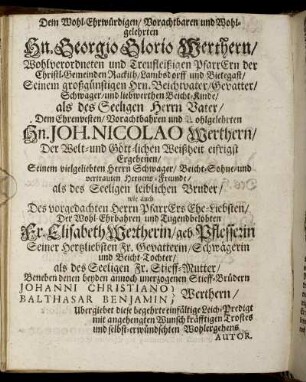 Dem Wohl-Ehrwürdigen/ Vorachtbaren und Wohl-
gelehrten
Hn. Georgio Glorio Werthern/
Wohlverordneten und Treufleißigen PfarrErn der
Christl-Gemeinden Rackith/ Lambsdorff und Bietegast/
Seinem großgünstigen Hrn. Beichtvater/ Gevatter/
Schwager/ und liebwerthen Beicht-Kinde/
als des Seeligen Herrn Vater/
Dem Ehrenvesten/ Vorachtbahren und Wohlgelehrten
Hn. JOH. NICOLAO Werthern/
Der Welt- und Gött-lichen Weißheit eifrigst
Ergebenen/
Seinem vielgeliebten Herrn Schwager/ Beicht-Sohne/ und
vertrauten Hertzens-Freunde/
als des Seeligen leiblichen Bruder/
wie auch
Des vorgedachten Herrn PfarrErs Ehe-Liebsten/
Der Wohl-Ehrbahren und Tugendbelobten
Fr. Elisabeth Wertherin/ geb. Pflesserin
Seiner Hertzliebsten Fr. Gevatterin/ Schwägerin
und Beicht-Tochter/
als des Seeligen Fr. Stieff-Mutter/
Beneben denen beyden annoch unerzogenen Stieff-Brüdern
JOHANNI CHRISTIANO/
BALTHASAR BENJAMIN/ Werthern/
Übergiebet diese begehrte einfältige Leich-Predigt
mit angehengten Wunsch kräfftigen Trostes
und selbst-erwündschten Wohlergehens
AUTOR.